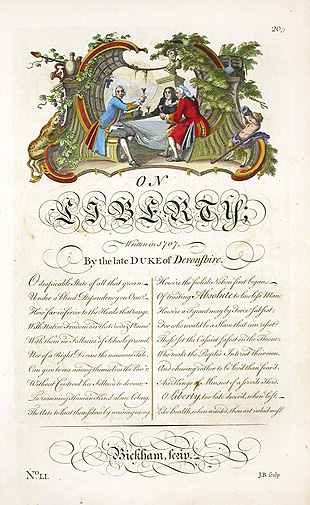 20
ON
LIBERTY;
Written in 1707.
By the late DUKE of Devonshire.
O despicable State of all that groan
Under a blind Dependency on One!
How far inferior to the Herds that range
With Native Freedom o'er the Woods & Plains!
With them no Fallacies of Schools prevail,
Nor of a Right Divine the nauseous Tale,
Can give to one among themselves the Pow'r,
Without Controul his Fellows to devour.
To reasoning Human Kind alone belong,
The Arts to hurt themselves by reasoning wrong.
Howe'er the foolish Notion first began,
Of trusting Absolute to lawless Man;
Howe'er a Tyrant may by Force subsist;
For who would be a Slave that can resist?
Those set the Casuist safest on the Throne,
Who make the People's Interest their own;
And chusing rather to be lov'd than fear'd,
Are Kings of Men, not of a servile Herd.
O Liberty, too late desir'd, when lost,
Like health, when wanted, thou art valued most!
Bickham, scrip.
No. LI.
J.B. sculp